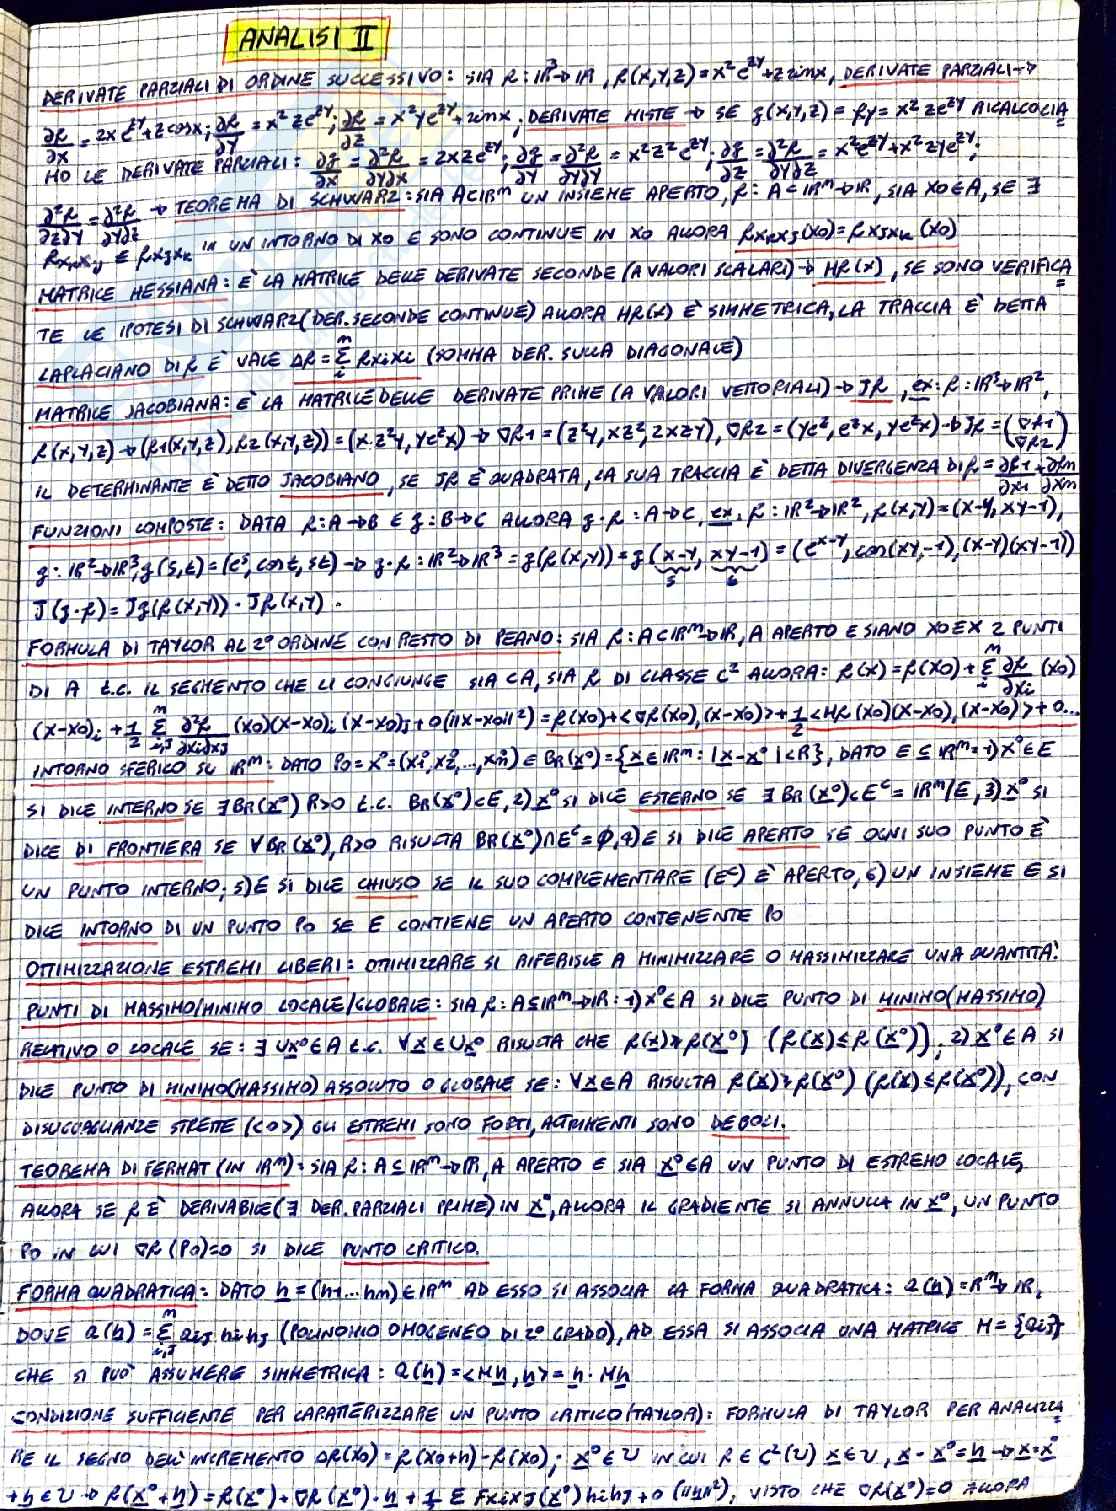 ANALISI II
DERIVATE PARZIALI DI ORDINE SUCCESSIVO: SIA f: ℝ³→ℝ, f(x,y,z) = x²e^{zy}+z sinx, DERIVATE PARZIALI →
∂f/∂x = 2x e^{zy}+z cosx; ∂f/∂y = x² z e^{zy}; ∂f/∂z = x² y e^{zy} + sinx; DERIVATE MISTE → SE g(x,y,z) = fy = x² z e^{zy} RICALCOLIA
MO LE DERIVATE PARZIALI: ∂g/∂x = ∂²f/∂y∂x = 2xz e^{zy}; ∂g/∂y = ∂²f/∂y∂y = x² z² e^{zy}; ∂g/∂z = ∂²f/∂y∂z = x² e^{zy} + x² z y e^{zy};
∂²f/∂z∂y = ∂²f/∂y∂z → TEOREMA DI SCHWARZ: SIA A⊂ℝᵐ UN INSIEME APERTO, f: A⊂ℝᵐ→ℝ, SIA x0∈A, SE ∃
fxₖxⱼ E fxⱼxₖ IN UN INTORNO DI x0 E SONO CONTINUE IN x0 ALLORA fxₖxⱼ(x0) = fxⱼxₖ(x0)
MATRICE HESSIANA: È LA MATRICE DELLE DERIVATE SECONDE (A VALORI SCALARI) → Hf(x), SE SONO VERIFICA
TE LE IPOTESI DI SCHWARZ (DER. SECONDE CONTINUE) ALLORA Hf(x) È SIMMETRICA, LA TRACCIA È DETTA
LAPLACIANO DI f E VALE Δf = Σᵢᵐ fxixi (SOMMA DER. SULLA DIAGONALE)
MATRICE JACOBIANA: È LA MATRICE DELLE DERIVATE PRIME (A VALORI VETTORIALI) → Jf, ex: f: ℝ³→ℝ²,
f(x,y,z) → (f1(x,y,z), f2(x,y,z)) = (x·z²y, ye^zx) → ∇f1 = (z²y, xz², 2xzy), ∇f2 = (ye^z, e^zx, ye^zx) → Jf = (∇f1 ∇f2)
IL DETERMINANTE È DETTO JACOBIANO, SE Jf È QUADRATA, LA SUA TRACCIA È DETTA DIVERGENZA DI f = ∂f1/∂x1 + ∂fm/∂xm
FUNZIONI COMPOSTE: DATA f: A→B E g: B→C ALLORA g∘f: A→C, ex. f: ℝ²→ℝ², f(x,y) = (x-y, xy-1),
g: ℝ²→ℝ³, g(s,t) = (e^s, cost, st) → g∘f: ℝ²→ℝ³ = g(f(x,y)) = g(x-y, xy-1) = (e^{x-y}, cos(xy-1), (x-y)(xy-1))
s t
J(g∘f) = Jg(f(x,y)) · Jf(x,y).
FORMULA DI TAYLOR AL 2° ORDINE CON RESTO DI PEANO: SIA f: A⊂ℝᵐ→ℝ, A APERTO E SIANO x0 E x 2 PUNTI
DI A t.c. IL SEGMENTO CHE LI CONGIUNGE SIA ⊂A, SIA f DI CLASSE C² ALLORA: f(x) = f(x0) + Σᵢᵐ ∂f/∂xi (x0)
(x-x0)i + 1/2 Σᵢ,ⱼᵐ ∂²f/∂xi∂xj (x0)(x-x0)i (x-x0)j + o(||x-x0||²) = f(x0) + <∇f(x0), (x-x0)> + 1/2 <Hf(x0)(x-x0), (x-x0)> + o...
INTORNO SFERICO SU ℝᵐ: DATO P0 = x° = (x1°, x2°, ..., xm°) E BR(x°) = {x∈ℝᵐ: |x-x°|<R}, DATO E ⊆ ℝᵐ: 1) x°∈E
SI DICE INTERNO SE ∃ BR(x°) R>0 t.c. BR(x°)⊂E, 2) x° SI DICE ESTERNO SE ∃ BR(x°)⊂Eᶜ = ℝᵐ/E, 3) x° SI
DICE DI FRONTIERA SE ∀BR(x°), R>0 RISULTA BR(x°)∩Eᶜ=∅, 4) E SI DICE APERTO SE OGNI SUO PUNTO È
UN PUNTO INTERNO; 5) E SI DICE CHIUSO SE IL SUO COMPLEMENTARE (Eᶜ) È APERTO, 6) UN INSIEME E SI
DICE INTORNO DI UN PUNTO P0 SE E CONTIENE UN APERTO CONTENENTE P0
OTTIMIZZAZIONE ESTREMI LIBERI: OTTIMIZZARE SI RIFERISCE A MINIMIZZARE O MASSIMIZZARE UNA QUANTITÀ.
PUNTI DI MASSIMO/MINIMO LOCALE/GLOBALE: SIA f: A⊆ℝᵐ→ℝ: 1) x°∈A SI DICE PUNTO DI MINIMO (MASSIMO)
RELATIVO O LOCALE SE: ∃ Ux°∈A t.c. ∀x∈Ux° RISULTA CHE f(x)≥f(x°) (f(x)≤f(x°)); 2) x°∈A SI
DICE PUNTO DI MINIMO (MASSIMO) ASSOLUTO O GLOBALE SE: ∀x∈A RISULTA f(x)≥f(x°) (f(x)≤f(x°)), CON
DISUGUAGLIANZE STRETTE (< O >) GLI ESTREMI SONO FORTI, ALTRIMENTI SONO DEBOLI.
TEOREMA DI FERMAT (IN ℝᵐ): SIA f: A⊆ℝᵐ→ℝ, A APERTO E SIA x°∈A UN PUNTO DI ESTREMO LOCALE,
ALLORA SE f È DERIVABILE (∃ DER. PARZIALI PRIME) IN x°, ALLORA IL GRADIENTE SI ANNULLA IN x°, UN PUNTO
P0 IN CUI ∇f(P0)=0 SI DICE PUNTO CRITICO.
FORMA QUADRATICA: DATO h = (h1...hm)∈ℝᵐ AD ESSO SI ASSOCIA LA FORMA QUADRATICA: Q(h) = ℝᵐ→ℝ,
DOVE Q(h) = Σᵢ,ⱼᵐ aij hi hj (POLINOMIO OMOGENEO DI 2° GRADO), AD ESSA SI ASSOCIA UNA MATRICE M = {aij}
CHE SI PUÒ ASSUMERE SIMMETRICA: Q(h) = <Mh, h> = h · Mh
CONDIZIONE SUFFICIENTE PER CARATTERIZZARE UN PUNTO CRITICO (TAYLOR): FORMULA DI TAYLOR PER ANALIZZA
RE IL SEGNO DELL'INCREMENTO Δf(x0) = f(x0+h) - f(x0); x°∈U IN CUI f∈C²(U) x∈U, x-x°=h → x=x°
+h∈U → f(x°+h) = f(x°) + ∇f(x°)·h + 1/2 Σ fxixj(x°)hihj + o(||h||²), VISTO CHE ∇f(x°)=0 ALLORA